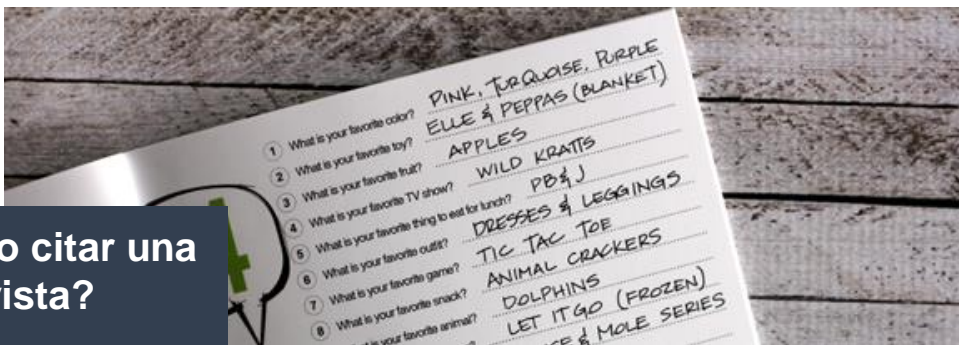 1 What is your favorite color? PINK, TURQUOISE, PURPLE
2 What is your favorite toy? ELLE & PEPPAS (BLANKET)
3 What is your favorite fruit? APPLES
4 What is your favorite TV show? WILD KRATTS
5 What is your favorite thing to eat for lunch? PB&J
6 What is your favorite outfit? DRESSES & LEGGINGS
7 What is your favorite game? TIC TAC TOE
8 What is your favorite snack? ANIMAL CRACKERS
is your favorite animal? DOLPHINS
LET IT GO (FROZEN)
& MOLE SERIES
o citar una
vista?